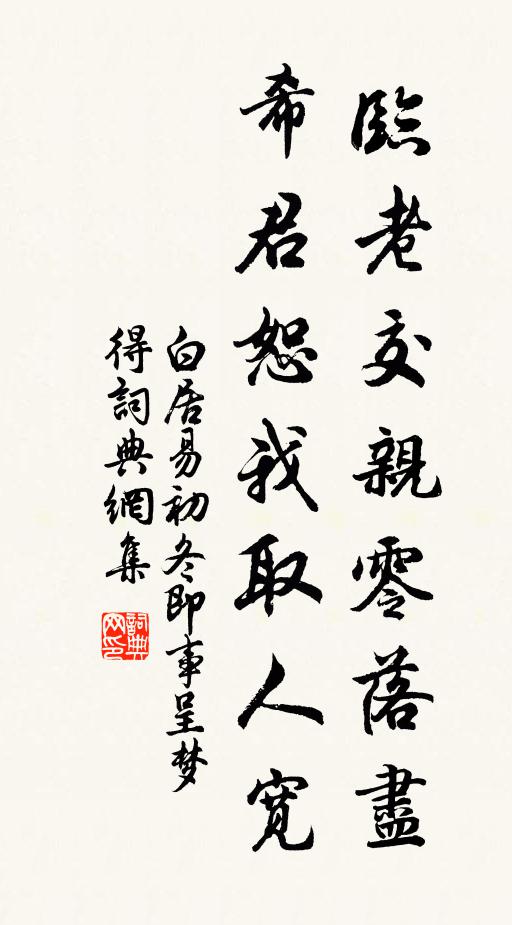 臨老交親零落盡
希君恕我取人寬
白居易初冬即事呈梦
得詞典網集
詞典网印